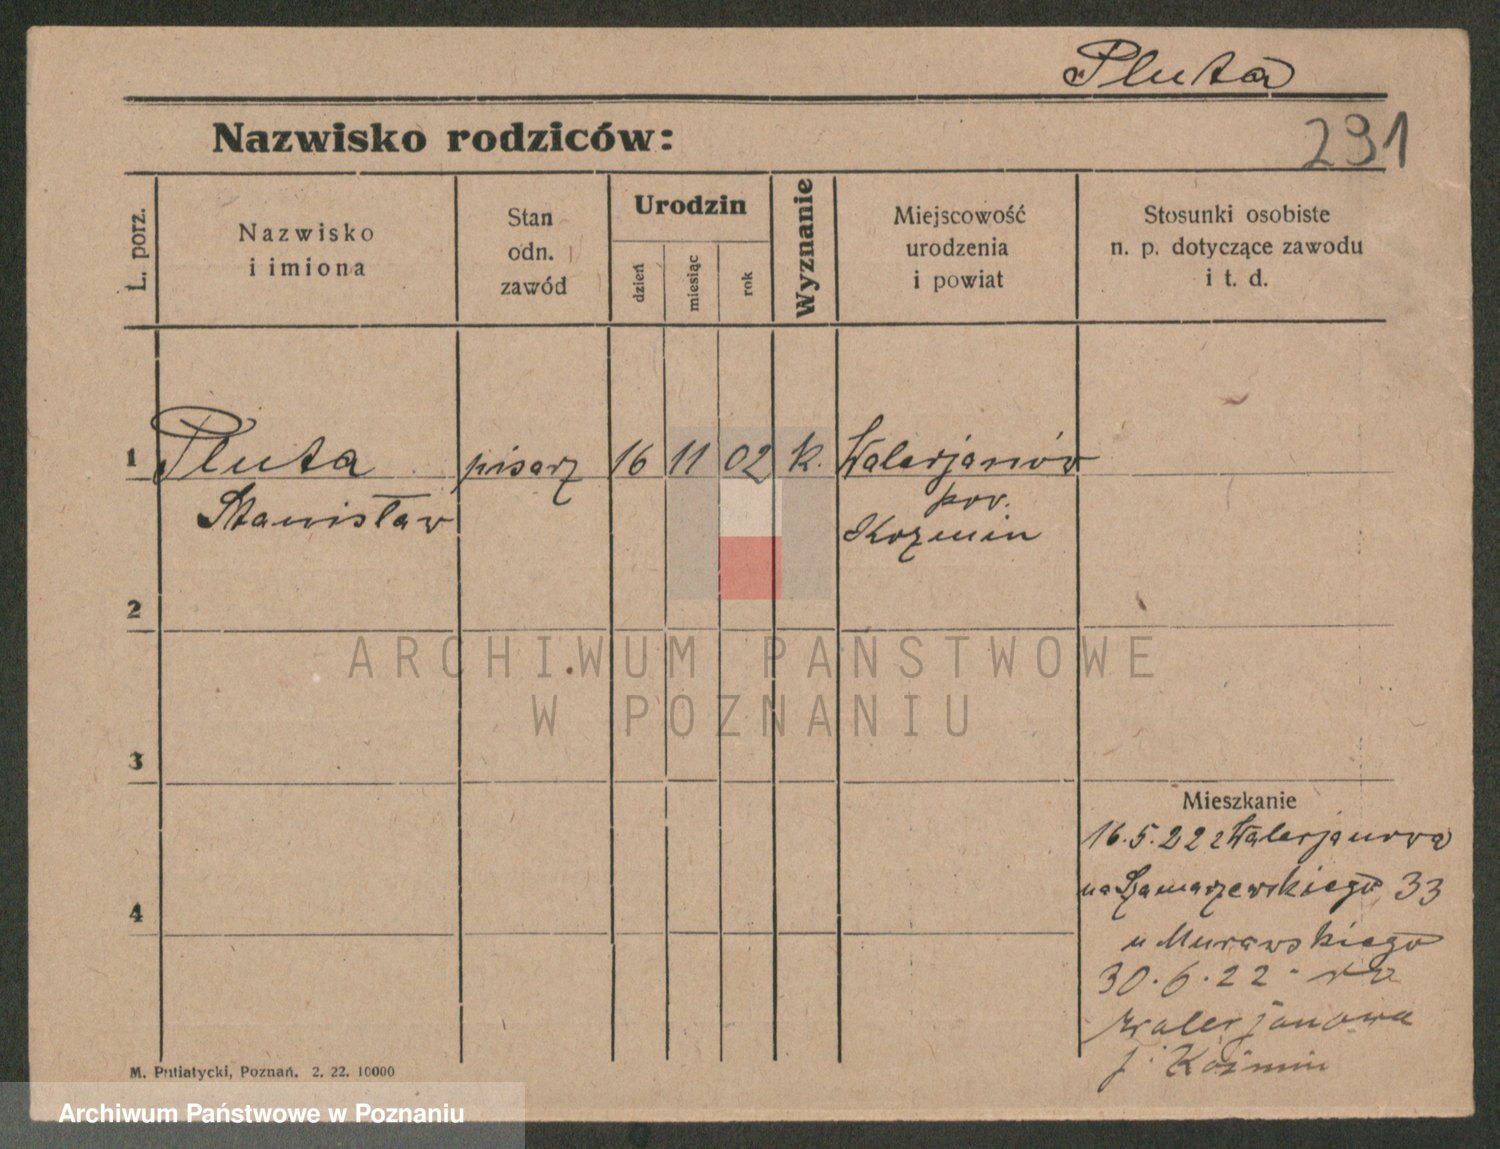 Pluta
Nazwisko rodziców:
291
L. porz.
Nazwisko
i imiona
Stan
odn.
zawód
Urodzin
dzień
miesiąc
rok
Wyznanie
Miejscowość
urodzenia
i powiat
Stosunki osobiste
n. p. dotyczące zawodu
i t. d.
1 Pluta pisarz 16 11 02 k. Walerjanów
Stanisław
pow.
Kozmin
2
ARCHIWUM PAŃSTWOWE
W POZNANIU
3
Mieszkanie
16.5.22 z Walerjanowa
na Szamarzewskiego 33
4
u Murawskiego
30.6.22 do
Walerjanowa
p. Koźmin
M. Putiatycki, Poznań. 2. 22. 10000
Archiwum Państwowe w Poznaniu